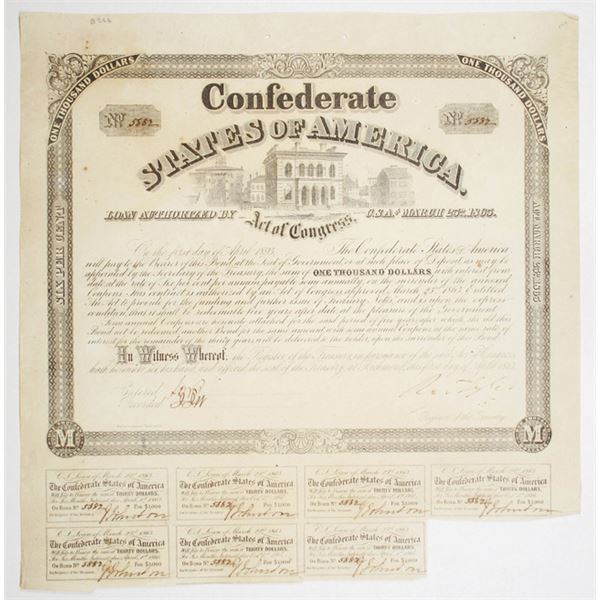 B266
ONE THOUSAND DOLLARS
ONE THOUSAND DOLLARS
Confederate
No. 5882
No. 5882
STATES OF AMERICA.
LOAN AUTHORIZED BY
Act of Congress,
C.S.A. of MARCH 23rd, 1863.
SIX PER CENT
By the first day of April 1893, The Confederate States of America
will pay to the Bearer of this Bond, at the Seat of Government, or at such place of Deposit as may be
appointed by the Secretary of the Treasury, the sum of ONE THOUSAND DOLLARS, with interest from
date, at the rate of Six per cent per annum, payable semi annually, on the surrender of the annexed
Coupons. This contract is authorized by an Act of Congress, approved March 23rd 1863, Entitled
"An Act to provide for the funding and further issue of Treasury Notes," and is upon the express
condition, that it shall be redeemable five years after date, at the pleasure of the Government.
Semi annual Coupons are hereunto attached for the said period of five years, after which, should this
Bond not be redeemed, another Bond for the same amount with semi annual Coupons at the same rate of
interest for the remainder of the thirty years, will be delivered to the holder upon the surrender of this Bond.
In Witness Whereof, the Register of the Treasury, in pursuance of the said Act of Congress,
hath hereunto set his hand, and affixed the seal of the Treasury, at Richmond, this first day of April 1863.
Entered
Recorded
Register of the Treasury
M
M
C.S. Loan of March 23rd 1863.
The Confederate States of America
Will pay to Bearer the sum of THIRTY DOLLARS,
On Bond No. 5882 For $1,000
C.S. Loan of March 23rd 1863.
The Confederate States of America
Will pay to Bearer the sum of THIRTY DOLLARS,
On Bond No. 5882 For $1,000
C.S. Loan of March 23rd 1863.
The Confederate States of America
Will pay to Bearer the sum of THIRTY DOLLARS,
On Bond No. 5882 For $1,000
C.S. Loan of March 23rd 1863.
The Confederate States of America
Will pay to Bearer the sum of THIRTY DOLLARS,
On Bond No. 5882 For $1,000
C.S. Loan of March 23rd 1863.
The Confederate States of America
Will pay to Bearer the sum of THIRTY DOLLARS,
On Bond No. 5882 For $1,000
C.S. Loan of March 23rd 1863.
The Confederate States of America
Will pay to Bearer the sum of THIRTY DOLLARS,
On Bond No. 5882 For $1,000
C.S. Loan of March 23rd 1863.
The Confederate States of America
Will pay to Bearer the sum of THIRTY DOLLARS,
On Bond No. 5882 For $1,000